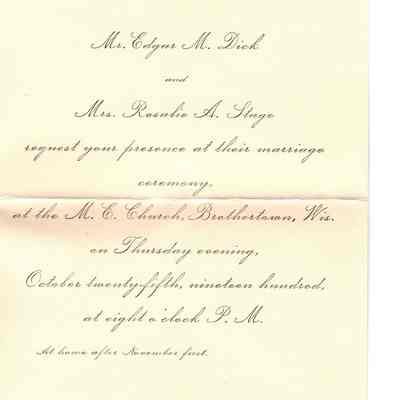 Mr. Edgar M. Dick
and
Mrs. Rosalie A. Stage
request your presence at their marriage
ceremony,
at the M. E. Church, Brothertown, Wis.
on Thursday evening,
October twenty-fifth, nineteen hundred,
at eight o'clock P. M.
At home after November first.